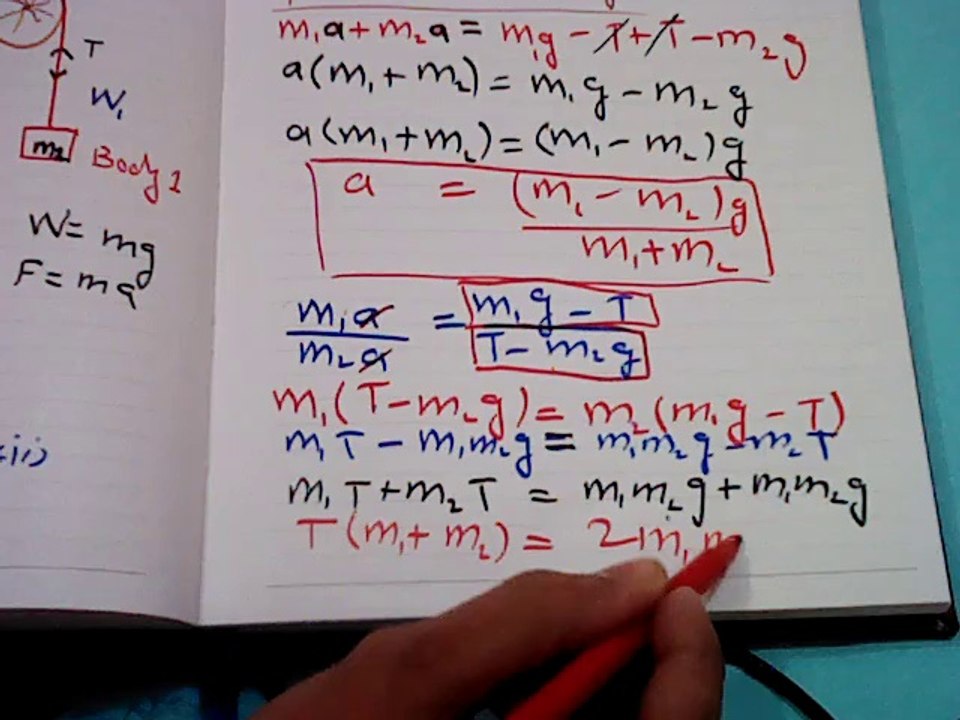 T
W₁
m₂
Body 1
W = mg
F = ma
ii)
m₁a + m₂a = m₁g - T + T - m₂g
a(m₁ + m₂) = m₁g - m₂g
a(m₁ + m₂) = (m₁ - m₂)g
a = (m₁ - m₂)g
m₁ + m₂
m₁a = m₁g - T
m₂a T - m₂g
m₁(T - m₂g) = m₂(m₁g - T)
m₁T - m₁m₂g = m₁m₂g - m₂T
m₁T + m₂T = m₁m₂g + m₁m₂g
T(m₁ + m₂) = 2m₁m